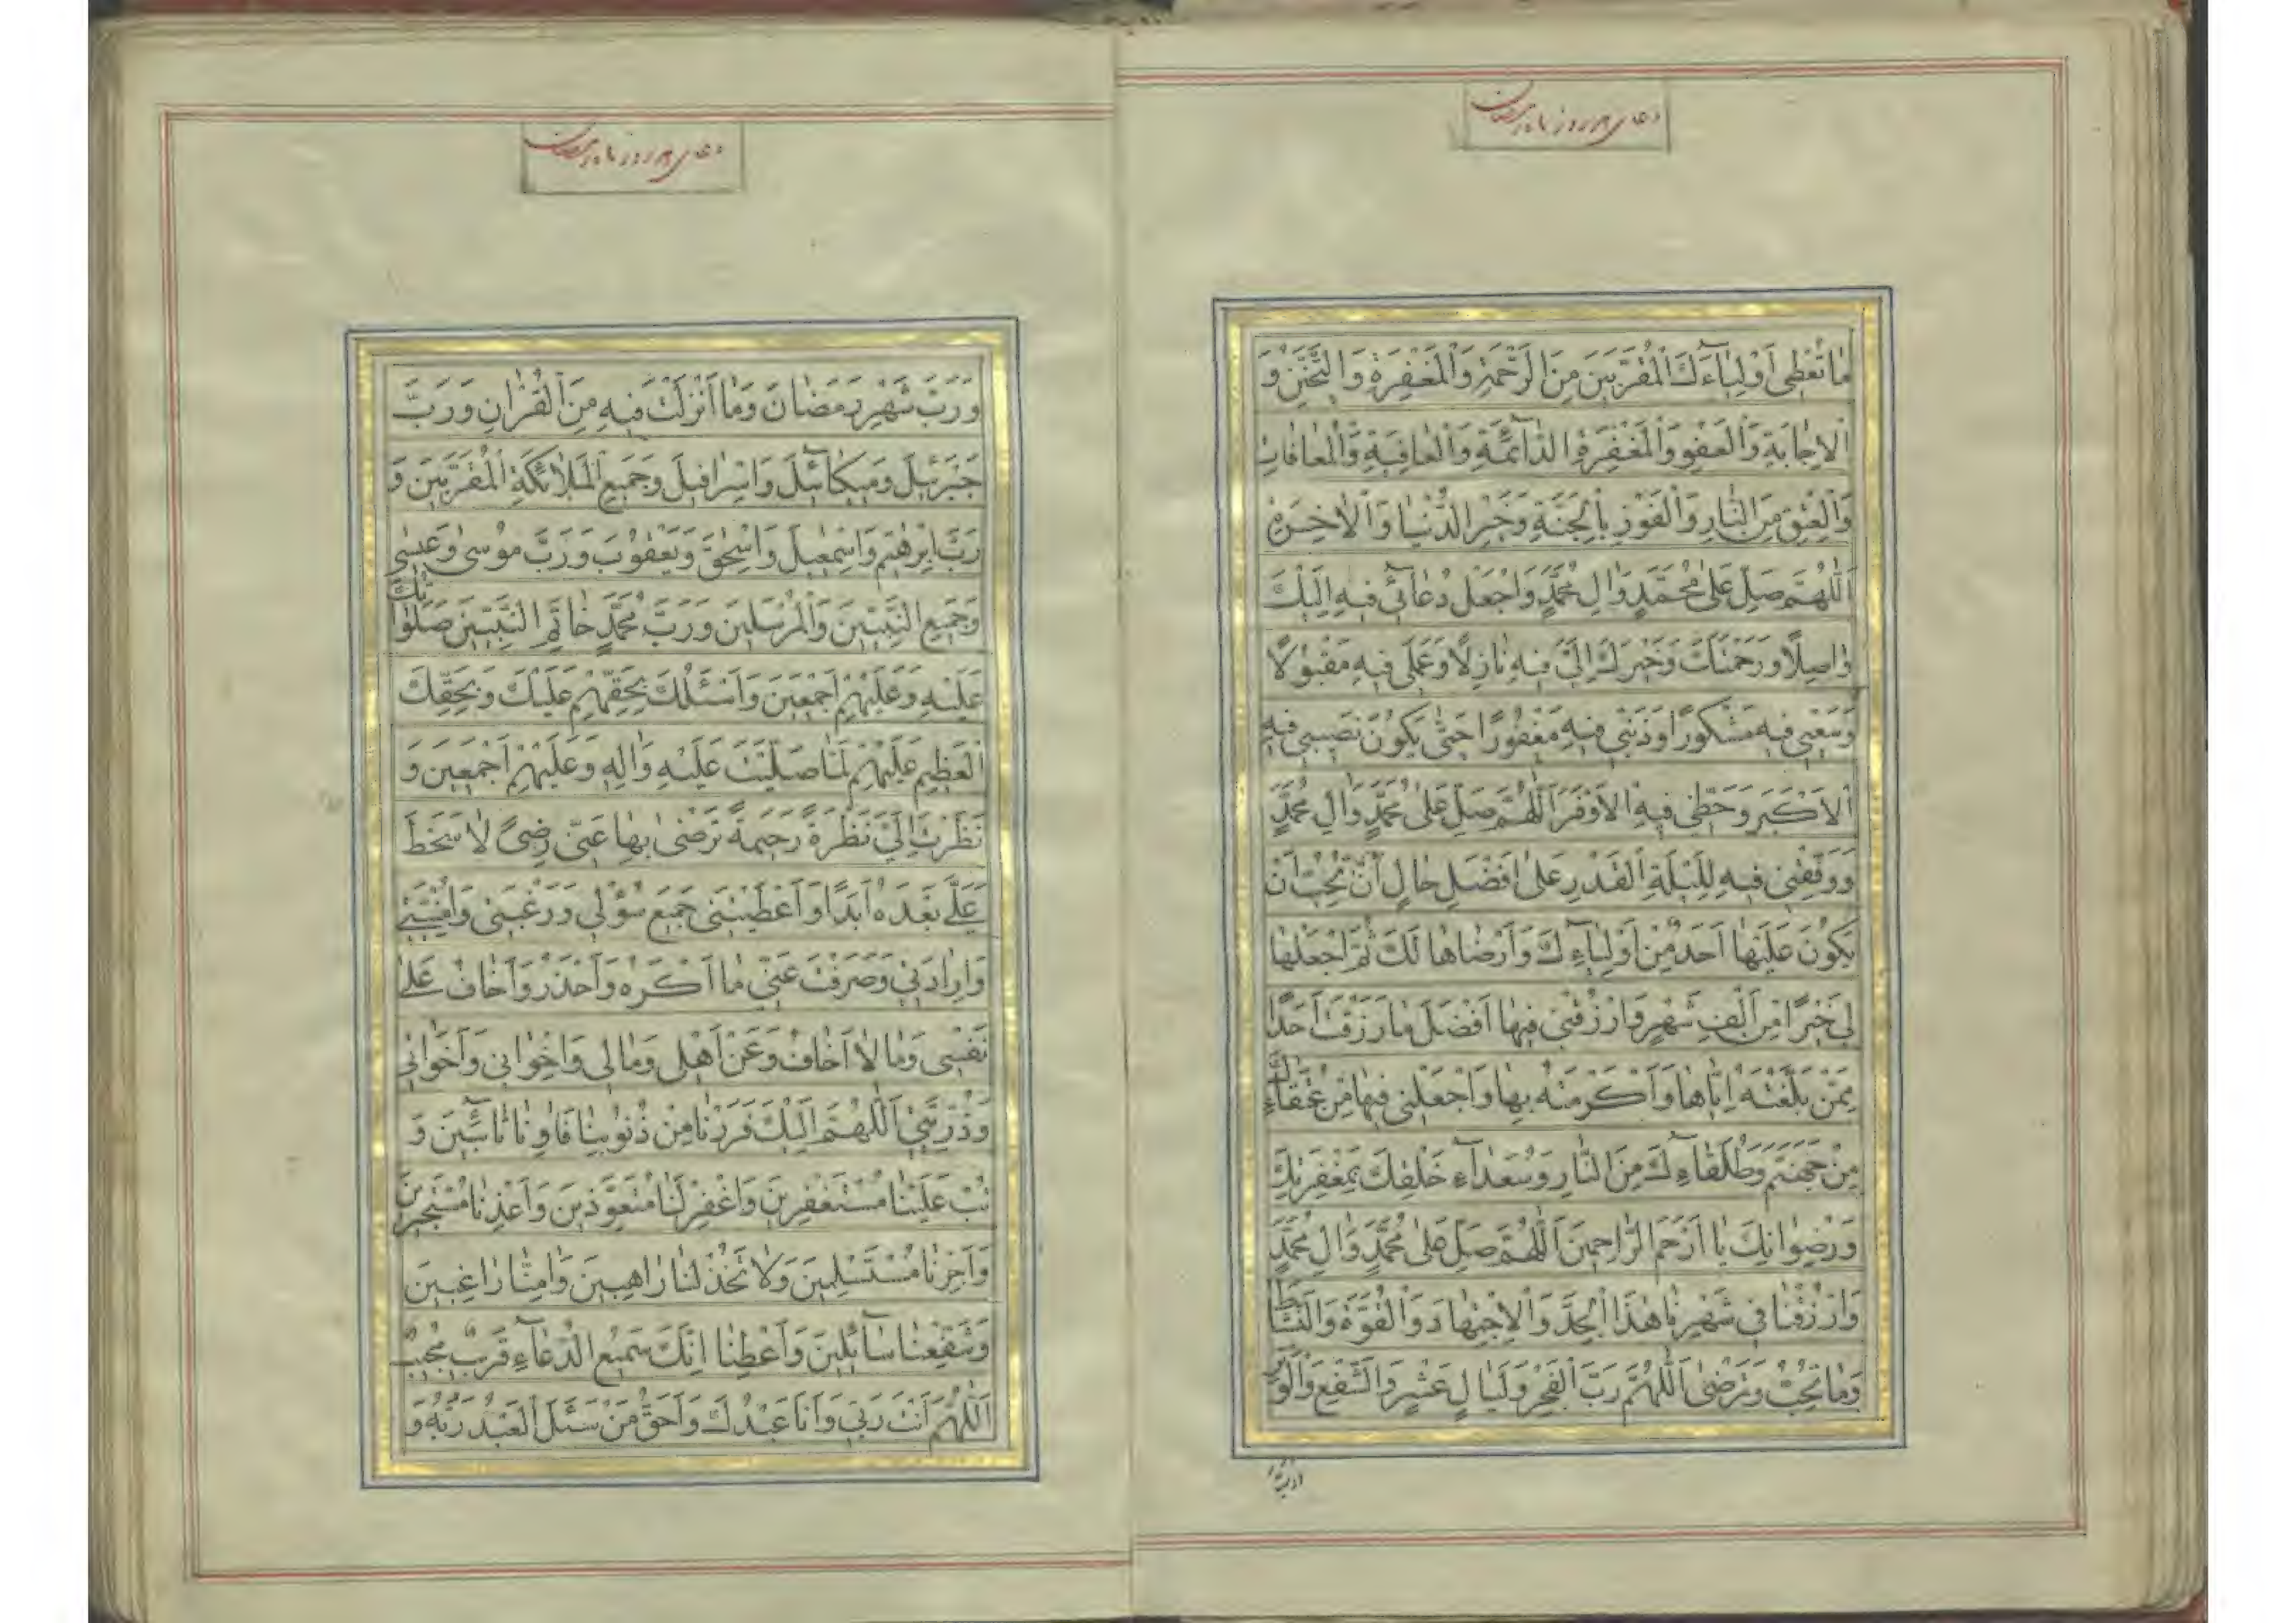 دعای هر روز ماه رمضان
مٰا تُعْطِی اَوْلِیٰآءَكَ الْمُقَرَّبینَ مِنَ الرَّحْمَةِ وَالْمَغْفِرَةِ وَالتَّحَنُّنِ وَ
الْاِجٰابَةِ وَالْعَفْوِ وَالْمَغْفِرَةِ الدّٰآئِمَةِ وَالْعٰافِیَةِ وَالْمُعٰافٰاتِ
وَالْعِتْقِ مِنَ النّٰارِ وَالْفَوْزِ بِالْجَنَّةِ وَخَیْرِ الدُّنْیٰا وَالْاٰخِرَةِ
اَللّٰهُمَّ صَلِّ عَلیٰ مُحَمَّدٍ وَاٰلِ مُحَمَّدٍ وَاجْعَلْ دُعٰآئی فیهِ اِلَیْكَ
وٰاصِلًا وَرَحْمَتَكَ وَخَیْرَكَ اِلَیَّ فیهِ نٰازِلًا وَعَمَلی فیهِ مَقْبُولًا
وَسَعْیی فیهِ مَشْكُورًا وَذَنْبی فیهِ مَغْفُورًا حَتّٰی یَكُونَ نَصیبی فیهِ
الْاَكْبَرَ وَحَظّی فیهِ الْاَوْفَرَ اَللّٰهُمَّ صَلِّ عَلیٰ مُحَمَّدٍ وَاٰلِ مُحَمَّدٍ
وَوَفِّقْنی فیهِ لِلَیْلَةِ الْقَدْرِ عَلیٰ اَفْضَلِ حٰالٍ اَنْ تُحِبُّ اَنْ
یَكُونَ عَلَیْهٰا اَحَدٌ مِنْ اَوْلِیٰآءِكَ وَاَرْضٰاهٰا لَكَ ثُمَّ اجْعَلْهٰا
لی خَیْرًا مِنْ اَلْفِ شَهْرٍ وَارْزُقْنی فیهٰا اَفْضَلَ مٰا رَزَقْتَ اَحَدًا
مِمَّنْ بَلَّغْتَهُ اِیّٰاهٰا وَاَكْرَمْتَهُ بِهٰا وَاجْعَلْنی فیهٰا مِنْ عُتَقٰآءِكَ
مِنْ جَهَنَّمَ وَطُلَقٰآءِكَ مِنَ النّٰارِ وَسُعَدٰآءِ خَلْقِكَ بِمَغْفِرَتِكَ
وَرِضْوٰانِكَ یٰا اَرْحَمَ الرّٰاحِمینَ اَللّٰهُمَّ صَلِّ عَلیٰ مُحَمَّدٍ وَاٰلِ مُحَمَّدٍ
وَارْزُقْنٰا فی شَهْرِنٰا هٰذَا الْجِدَّ وَالْاِجْتِهٰادَ وَالْقُوَّةَ وَالنَّشٰاطَ
وَمٰا تُحِبُّ وَتَرْضیٰ اَللّٰهُمَّ رَبَّ الْفَجْرِ وَلَیٰالٍ عَشْرٍ وَالشَّفْعِ وَالْوَتْرِ
دعای هر روز ماه رمضان
وَرَبَّ شَهْرِ رَمَضٰانَ وَمٰا اَنْزَلْتَ فیهِ مِنَ الْقُرْاٰنِ وَرَبَّ
جَبْرَئیلَ وَمیكٰآئیلَ وَاِسْرٰافیلَ وَجَمیعِ الْمَلٰائِكَةِ الْمُقَرَّبینَ وَ
رَبَّ اِبْرٰهیمَ وَاِسْمٰعیلَ وَاِسْحٰقَ وَیَعْقُوبَ وَرَبَّ مُوسیٰ وَعیسیٰ
وَجَمیعِ النَّبِیّینَ وَالْمُرْسَلینَ وَرَبَّ مُحَمَّدٍ خٰاتَمِ النَّبِیّینَ صَلَوٰاتُكَ
عَلَیْهِ وَعَلَیْهِمْ اَجْمَعینَ وَاَسْئَلُكَ بِحَقِّهِمْ عَلَیْكَ وَبِحَقِّكَ
الْعَظیمِ عَلَیْهِمْ لَمّٰا صَلَّیْتَ عَلَیْهِ وَاٰلِهِ وَعَلَیْهِمْ اَجْمَعینَ وَ
نَظَرْتَ اِلَیَّ نَظْرَةً رَحیمَةً تَرْضیٰ بِهٰا عَنّی رِضیً لٰا سَخَطَ
عَلَیَّ بَعْدَهُ اَبَدًا وَاَعْطَیْتَنی جَمیعَ سُؤْلی وَرَغْبَتی وَاُمْنِیَّتی
وَاِرٰادَتی وَصَرَفْتَ عَنّی مٰا اَكْرَهُ وَاَحْذَرُ وَاَخٰافُ عَلیٰ
نَفْسی وَمٰا لٰا اَخٰافُ وَعَنْ اَهْلی وَمٰالی وَاِخْوٰانی وَاَخَوٰاتی
وَذُرِّیَّتی اَللّٰهُمَّ اِلَیْكَ فَرَرْنٰا مِنْ ذُنُوبِنٰا فَاٰوِنٰا تٰآئِبینَ وَ
تُبْ عَلَیْنٰا مُسْتَغْفِرینَ وَاغْفِرْ لَنٰا مُتَعَوِّذینَ وَاَعِذْنٰا مُسْتَجیرینَ
وَاَجِرْنٰا مُسْتَسْلِمینَ وَلٰا تَخْذُلْنٰا رٰاهِبینَ وَاٰمِنّٰا رٰاغِبینَ
وَشَفِّعْنٰا سٰآئِلینَ وَاَعْطِنٰا اِنَّكَ سَمیعُ الدُّعٰآءِ قَریبٌ مُجیبٌ
اَللّٰهُمَّ اَنْتَ رَبّی وَاَنَا عَبْدُكَ وَاَحَقُّ مَنْ سَئَلَ الْعَبْدُ رَبَّهُ وَ